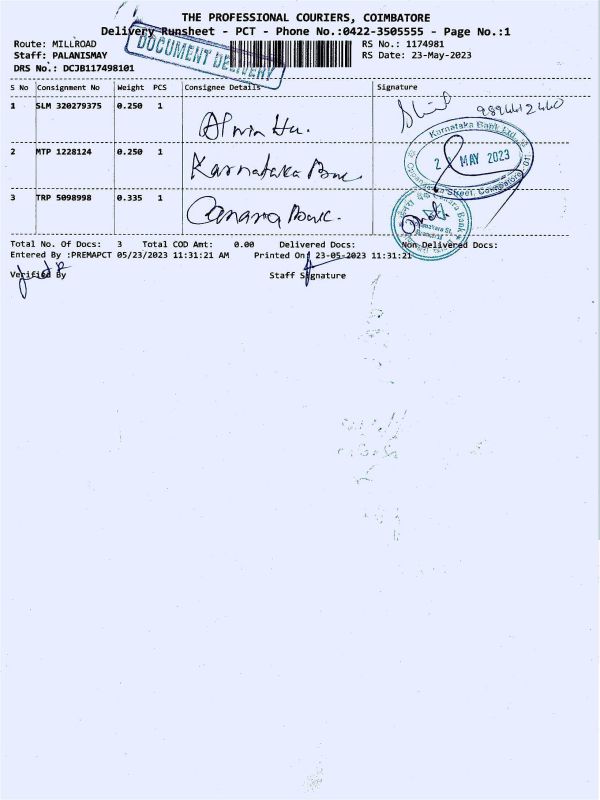 THE PROFESSIONAL COURIERS, COIMBATORE
Delivery Runsheet - PCT - Phone No.:0422-3505555 - Page No.:1
DOCUMENT DELIVERY
Route: MILLROAD RS No.: 1174981
Staff: PALANISMAY RS Date: 23-May-2023
DRS No.: DCJB117498101
S No Consignment No Weight PCS Consignee Details Signature
1 SLM 320279375 0.250 1
2 MTP 1228124 0.250 1 Karnataka
Karnataka Bank Ltd.,
MAY 2023
3 TRP 5098998 0.335 1 Canara
Total No. Of Docs: 3 Total COD Amt: 0.00 Delivered Docs: Non Delivered Docs:
Entered By :PREMAPCT 05/23/2023 11:31:21 AM Printed On: 23-05-2023 11:31:21
Verified By Staff Signature